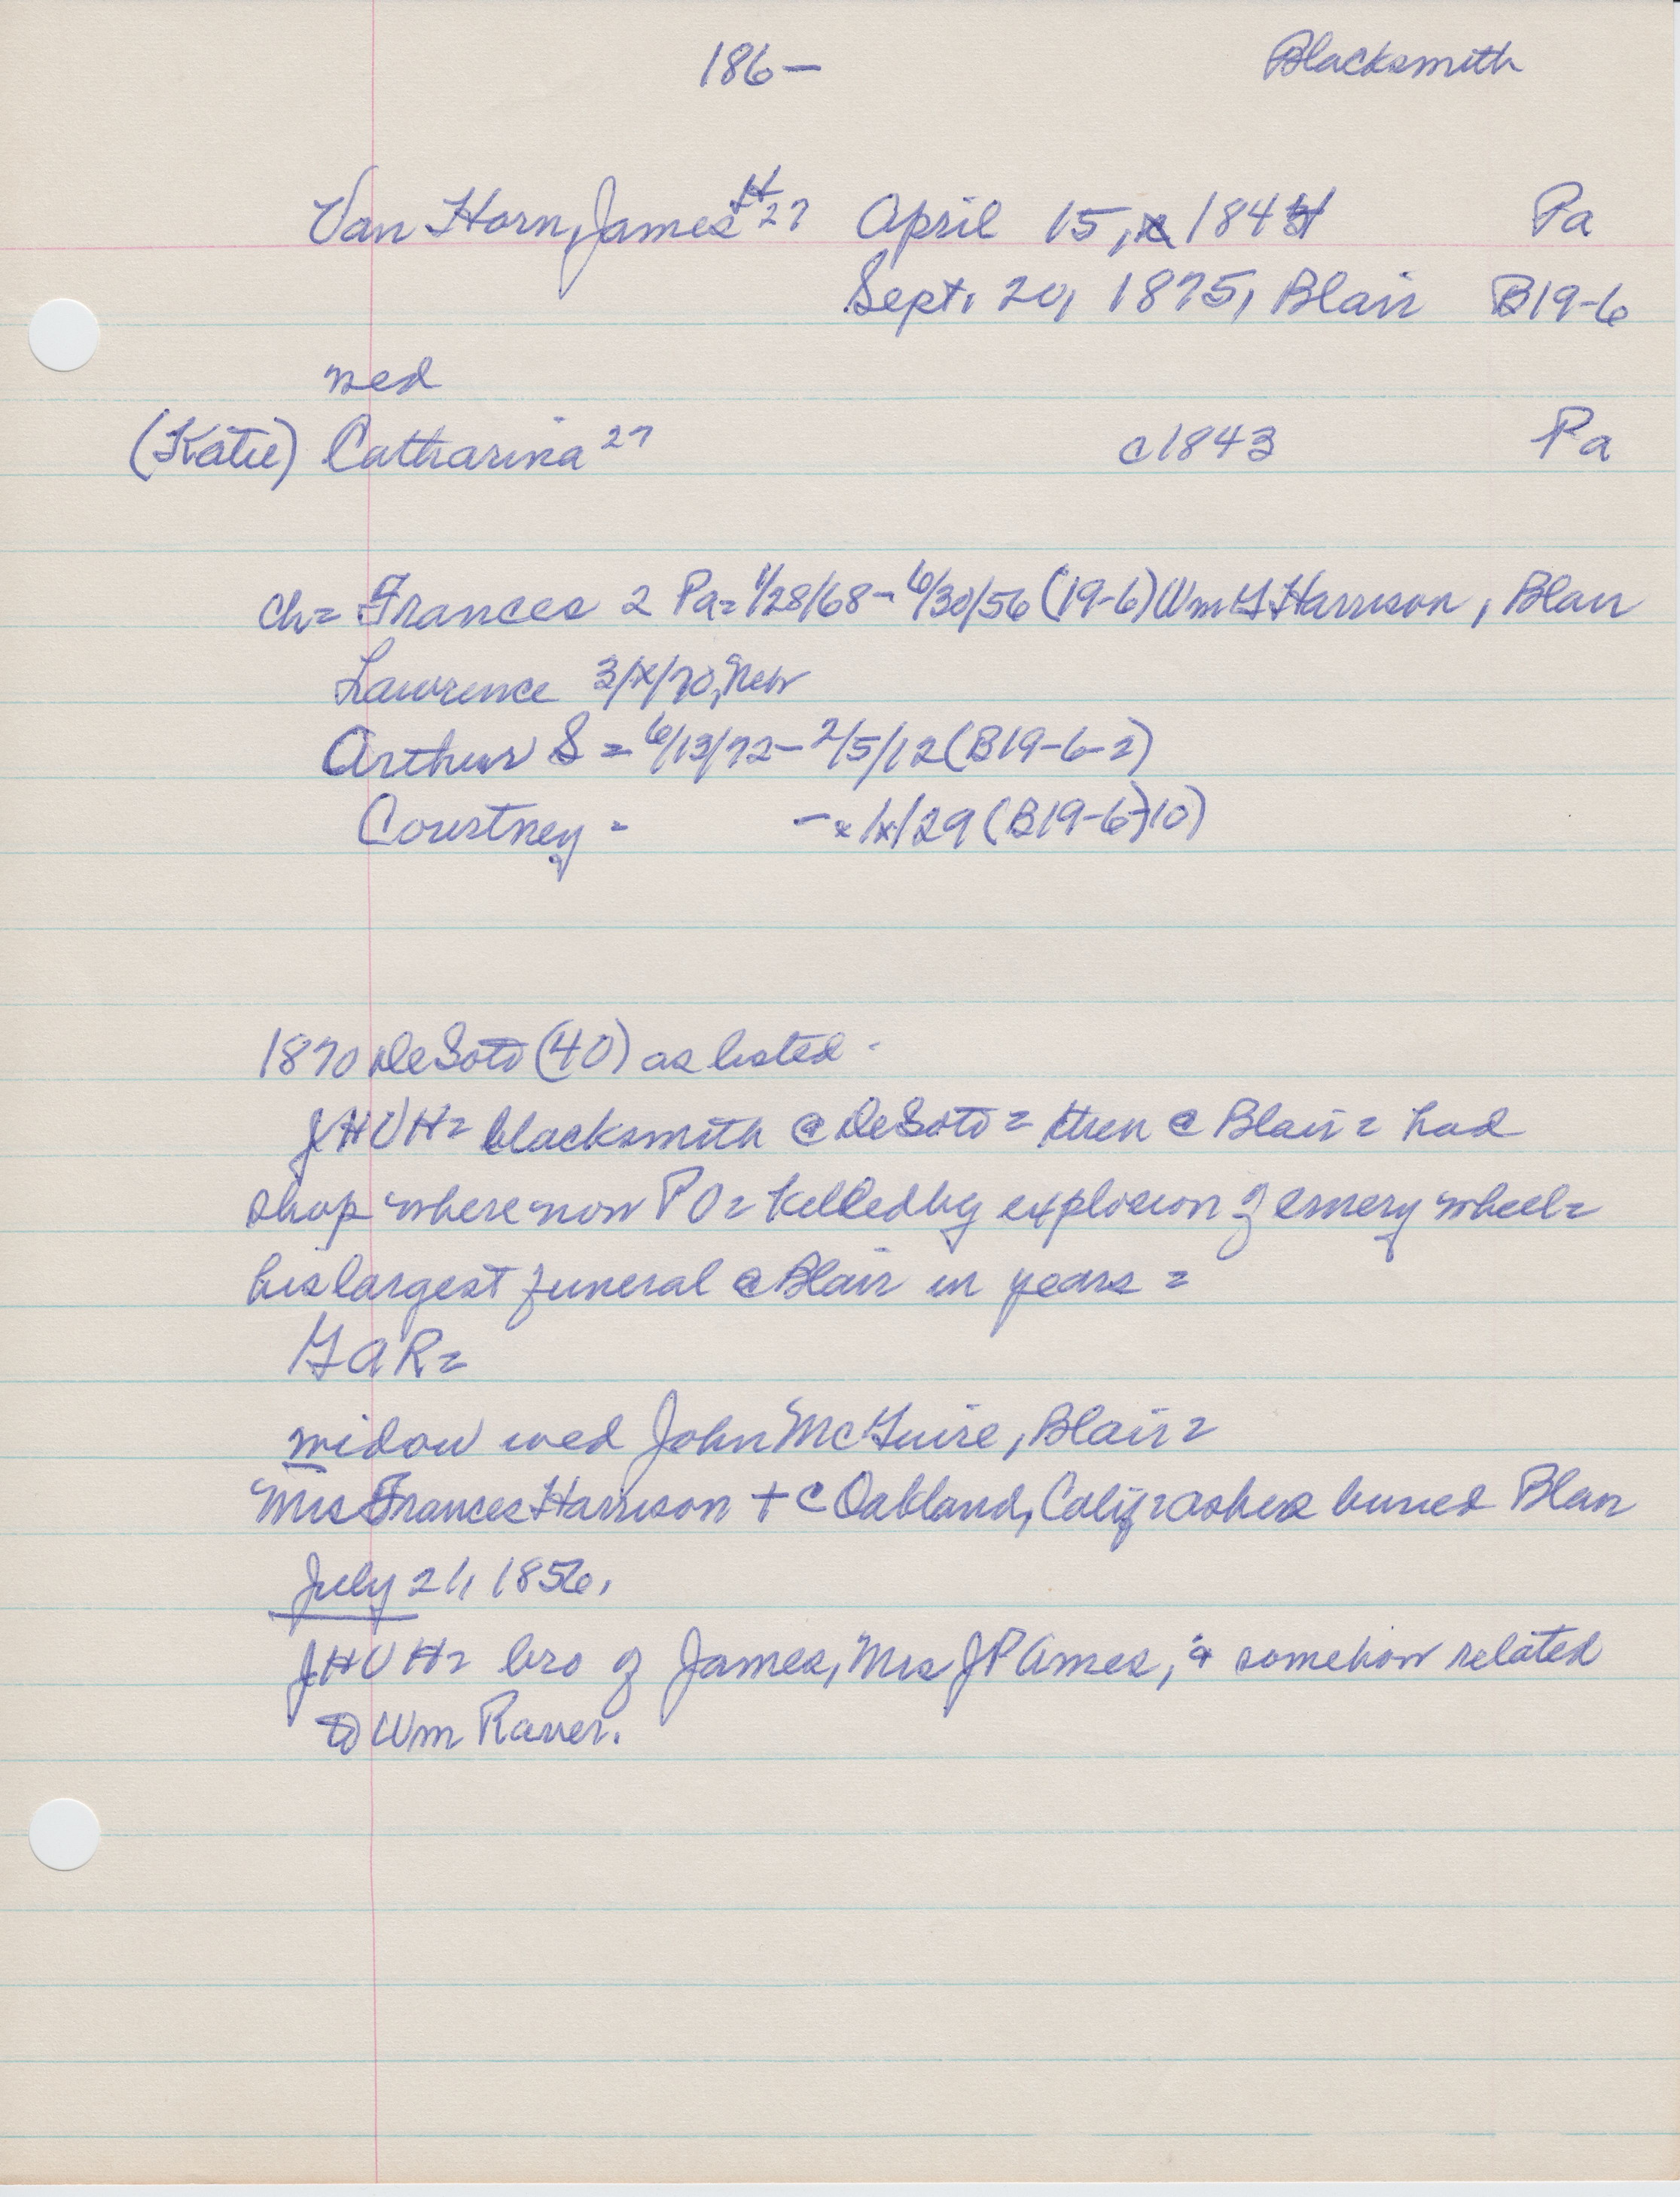 186- Blacksmith
Van Horn, James H 27 April 15, 1844 Pa
Sept. 20, 1875, Blair B19-6
wed
(Katie) Catharina 27 c1843 Pa
ch= Frances 2 Pa= 1/28/68 - 6/30/56 (19-6) Wm G Harrison, Blair
Lawrence 3/x/70, Neb
Arthur S = 6/13/72 - 2/5/12 (B19-6-2)
Courtney - - x/x/29 (B19-6-10)
1870 DeSoto (40) as listed -
JHVH= blacksmith @ DeSoto = then @ Blair = had
shop where now PO = killed by explosion of emery wheel =
his largest funeral @ Blair in years =
GAR=
widow wed John McGuire, Blair =
Mrs Frances Harrison + @ Oakland, Calif = ashes buried Blair
July 21, 1856.
JHVH= bro of James, Mrs JP Ames, & somehow related
to Wm Raver.